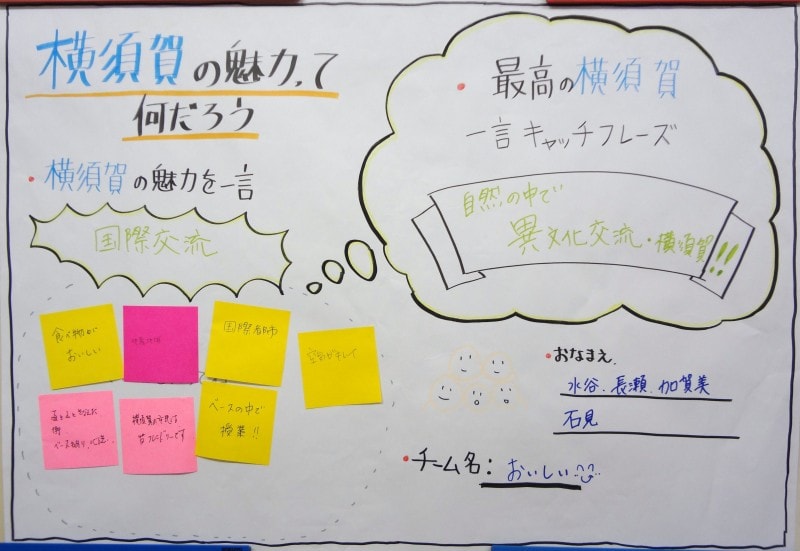 横須賀の魅力って
何だろう
・横須賀の魅力を一言
国際交流
・最高の横須賀
一言キャッチフレーズ
自然の中で
異文化交流・横須賀!!
食べ物が
おいしい
国際都市
空気がキレイ
街
ベースの中で
授業!!
横須賀の市民は
フレンドリーです
・おなまえ
水谷、長瀬、加賀美
石見
・チーム名:おいしい